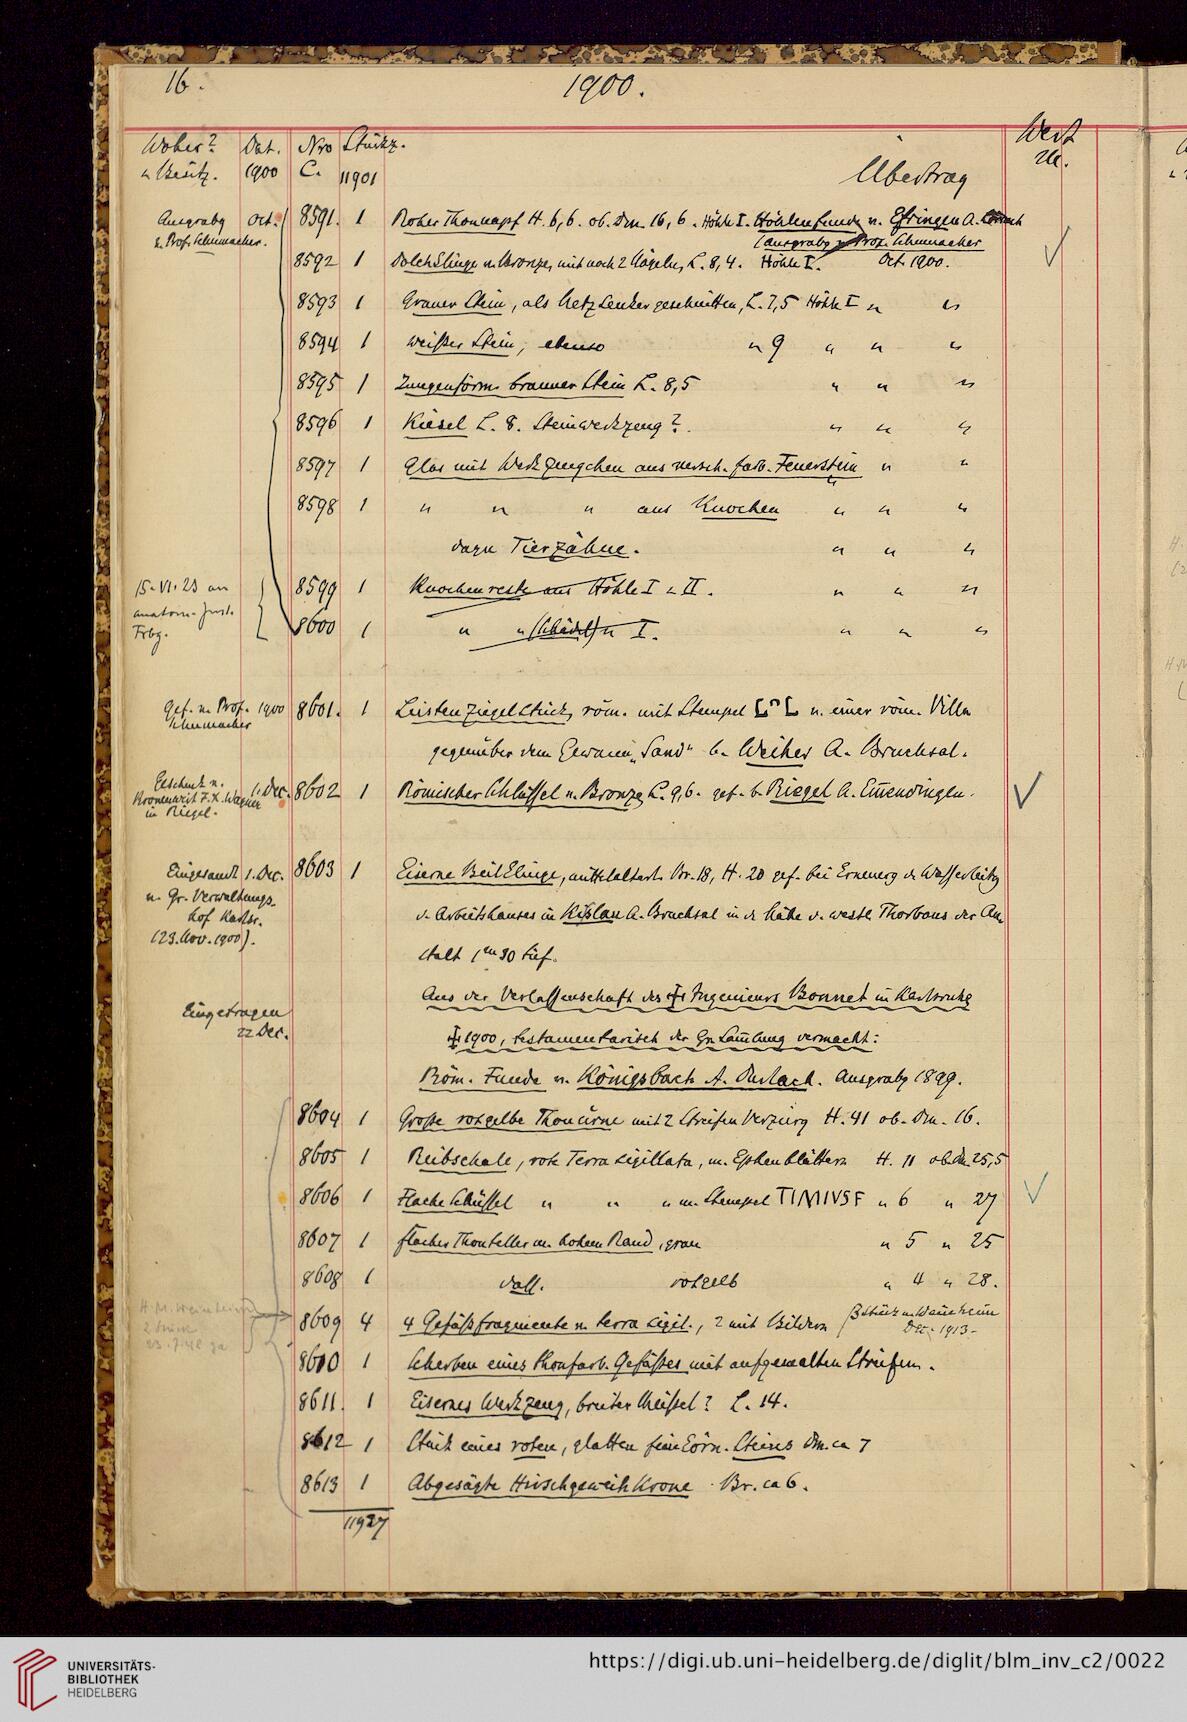 16.
1900.
Woher? Dat. Nro Stückz. Wert
u. Besitz. 1900 C. 11901 Übertrag M.
Ausgrabg Oct. 8591. 1 Roher Thonnapf H. 6,6. ob. Dm. 16,6. Höhle I. Höhlenfunde v. Efringen A. Lörrach
v. Prof. Schumacher. (Ausgrabg v. Prof. Schumacher
8592 1 Dolchklinge v. Bronze, mit noch 2 Nägeln, L. 8,4. Höhle I. Oct. 1900.
8593 1 Grauer Stein, als Netzsenker geschnitten, L. 7,5 Höhle I " "
8594 1 weißer Stein, ebenso " 9 " " "
8595 1 Zungenförm. brauner Stein L. 8,5 " " "
8596 1 Kiesel L. 8. Steinwerkzeug? " " "
8597 1 Glas mit Werkzeugchen aus versch. farb. Feuerstein " "
8598 1 " " " aus Knochen " " "
dazu Tierzähne. " " "
15.VI.23 an 8599 1 Knochenreste aus Höhle I u II. " " "
anatom. Inst.
Frbg. 8600 1 " " (Schädel) " I. " " "
Gef. v. Prof. 1900 8601. 1 Leistenziegelstück, röm. mit Stempel v. einer röm. Villa
Schumacher
gegenüber dem Gewann „Sand" b. Weiher A. Bruchsal.
Geschenk v. 1. Dec. 8602 1 Römischer Schlüssel v. Bronze, L. 9,6. gef. b. Riegel A. Emendingen.
Kronenwirt F. X. Wagner
in Riegel.
Eingesandt 1. Dec. 8603 1 Eiserne Beilklinge, mittelalterl. Br. 18, H. 20 gef. bei Erneuerg d. Wasserleitg
v. Gr. Verwaltungs-
hof Karlsr. d. Arbeitshauses in Kislau A. Bruchsal in d. Nähe d. westl. Thorbaus der An-
(23. Nov. 1900). stalt 1m 30 tief.
Aus der Verlassenschaft des † Ingenieurs Bonnet in Karlsruhe
Eingetragen
22 Dec. † 1900, testamentarisch der Gr. Samlung vermacht:
Röm. Funde v. Königsbach A. Durlach. Ausgrabg 1899.
8604 1 Große rotgelbe Thonurne mit 2 Streifen Verzierg H. 41 ob. Dm. 16.
8605 1 Reibschale, rote Terra sigillata, m. Epheublättern H. 11 ob. Dm. 25,5
8606 1 Flache Schüssel " " " m. Stempel TIMIVSF " 6 " 27
8607 1 flacher Thonteller m. hohem Rand, grau " 5 " 25
8608 1 dass. rotgelb " 4 " 28.
8609 4 4 Gefäßfragmente v. terra sigil., 2 mit Bildern
Dec. 1913.
8610 1 Scherben eines thonfarb. Gefäßes mit aufgemalten Streifen.
8611. 1 Eisernes Werkzeug, breiter Meißel? L. 14.
8612 1 Stück eines roten, glatten feinkörn. Steines Dm. ca 7
8613 1 Abgesägte Hirschgeweihkrone. Br. ca 6.
11927
UNIVERSITÄTS-
BIBLIOTHEK
HEIDELBERG
https://digi.ub.uni-heidelberg.de/diglit/blm_inv_c2/0022